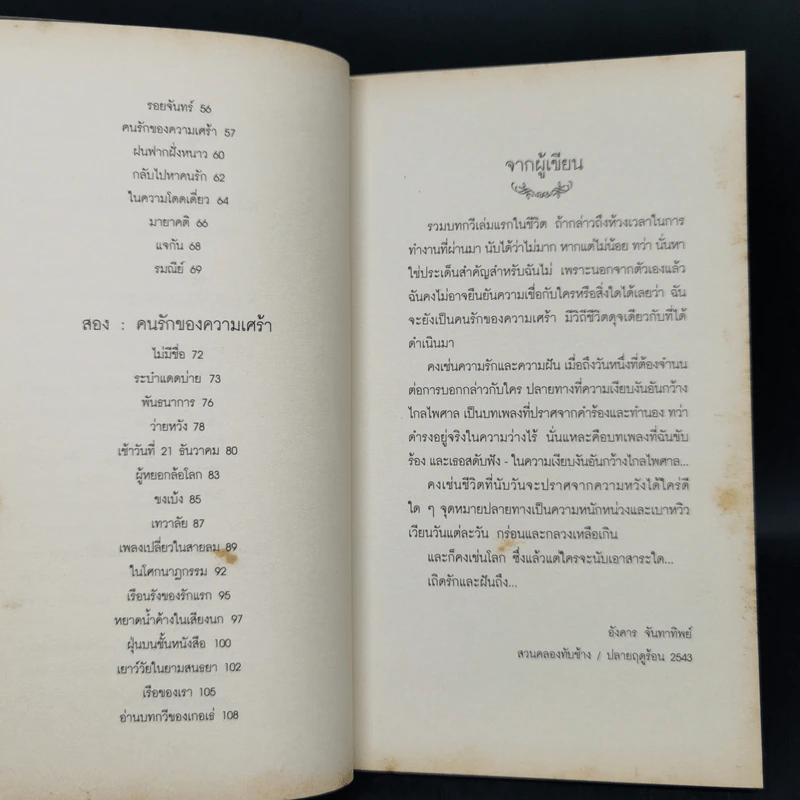 รอยจันทร์ 56
คนรักของความเศร้า 57
ฝนฟากฝั่งหนาว 60
กลับไปหาคนรัก 62
ในความโดดเดี่ยว 64
มายาคติ 66
แจกัน 68
รมณีย์ 69
สอง : คนรักของความเศร้า
ไม่มีชื่อ 72
ระบำแดดบ่าย 73
พันธนาการ 76
ว่ายหวัง 78
เช้าวันที่ 21 ธันวาคม 80
ผู้หยอกล้อโลก 83
ชงเบ้ง 85
เทวาลัย 87
เพลงเปลี่ยวในสายลม 89
ในโศกนาฏกรรม 92
เรือนรังของรักแรก 95
หยาดน้ำค้างในเสียงนก 97
ฝุ่นบนชั้นหนังสือ 100
เยาว์วัยในยามสนธยา 102
เรือของเรา 105
อ่านบทกวีของเกอเธ่ 108
จากผู้เขียน
รวมบทกวีเล่มแรกในชีวิต ถ้ากล่าวถึงห้วงเวลาในการ
ทำงานที่ผ่านมา นับได้ว่าไม่มาก หากแต่ไม่น้อย ทว่า นั่นหา
ใช่ประเด็นสำคัญสำหรับฉันไม่ เพราะนอกจากตัวเองแล้ว
ฉันคงไม่อาจยืนยันความเชื่อกับใครหรือสิ่งใดได้เลยว่า ฉัน
จะยังเป็นคนรักของความเศร้า มีวิถีชีวิตดุจเดียวกับที่ได้
ดำเนินมา
คงเช่นความรักและความฝัน เมื่อถึงวันหนึ่งที่ต้องจำนน
ต่อการบอกกล่าวกับใคร ปลายทางที่ความเงียบงันอันกว้าง
ไกลไพศาล เป็นบทเพลงที่ปราศจากคำร้องและทำนอง ทว่า
ดำรงอยู่จริงในความว่างไร้ นั่นแหละคือบทเพลงที่ฉันขับ
ร้อง และเธอสดับฟัง - ในความเงียบงันอันกว้างไกลไพศาล...
คงเช่นชีวิตที่นับวันจะปราศจากความหวังได้ใคร่ดี
ใด ๆ จุดหมายปลายทางเป็นความหนักหน่วงและเบาหวิว
เวียนวันแต่ละวัน กร่อนและกลวงเหลือเกิน
และก็คงเช่นโลก ซึ่งแล้วแต่ใครจะนับเอาสาระใด...
เถิดรักและฝันถึง...
อังคาร จันทาทิพย์
สวนคลองทับช้าง / ปลายฤดูร้อน 2543